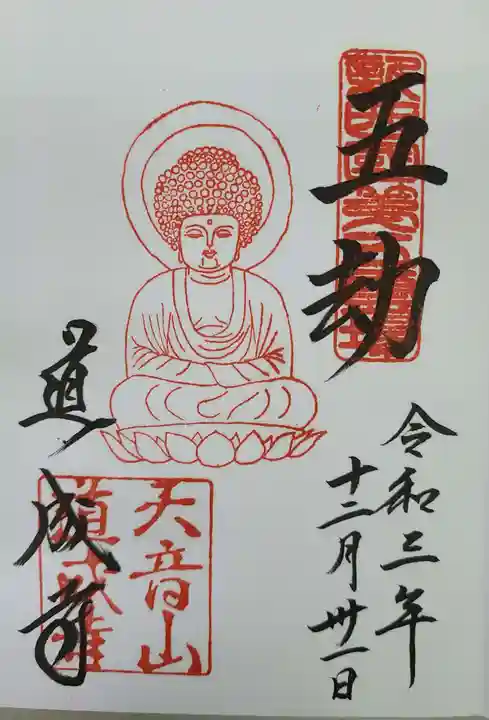 五劫
令和三年
十二月卅一日
道成寺
天音山